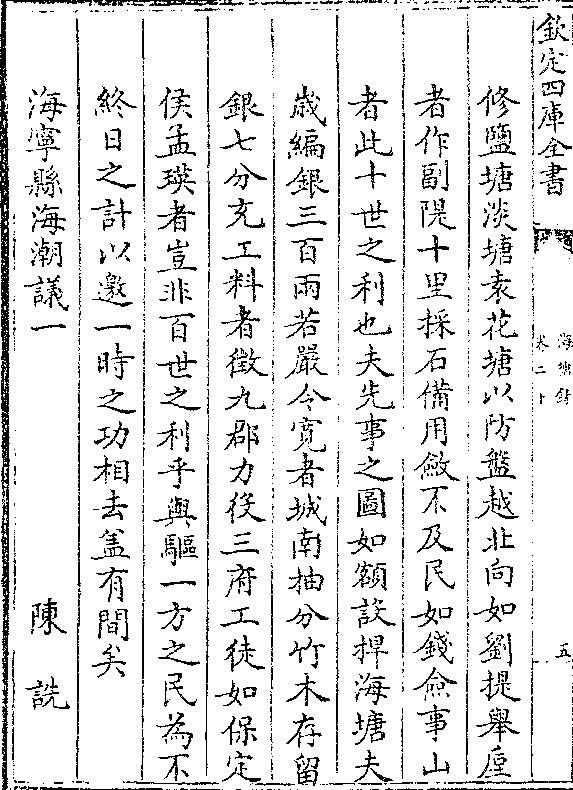 欽定四庫全書
海塘録
卷二十
五
修鹽塘淡塘袁花塘以防盤越北向如劉提舉垕
者作副隄十里採石備用斂不及民如錢僉事山
者此十世之利也夫先事之圖如額設捍海塘夫
歲編銀三百兩若嚴令寛者城南抽分竹木存留
銀七分充工料者徴九郡力役三府工徒如保定
侯孟瑛者豈非百世之利乎與驅一方之民為不
終日之計以邀一時之功相去盖有間矣
海寧縣海潮議一　陳詵